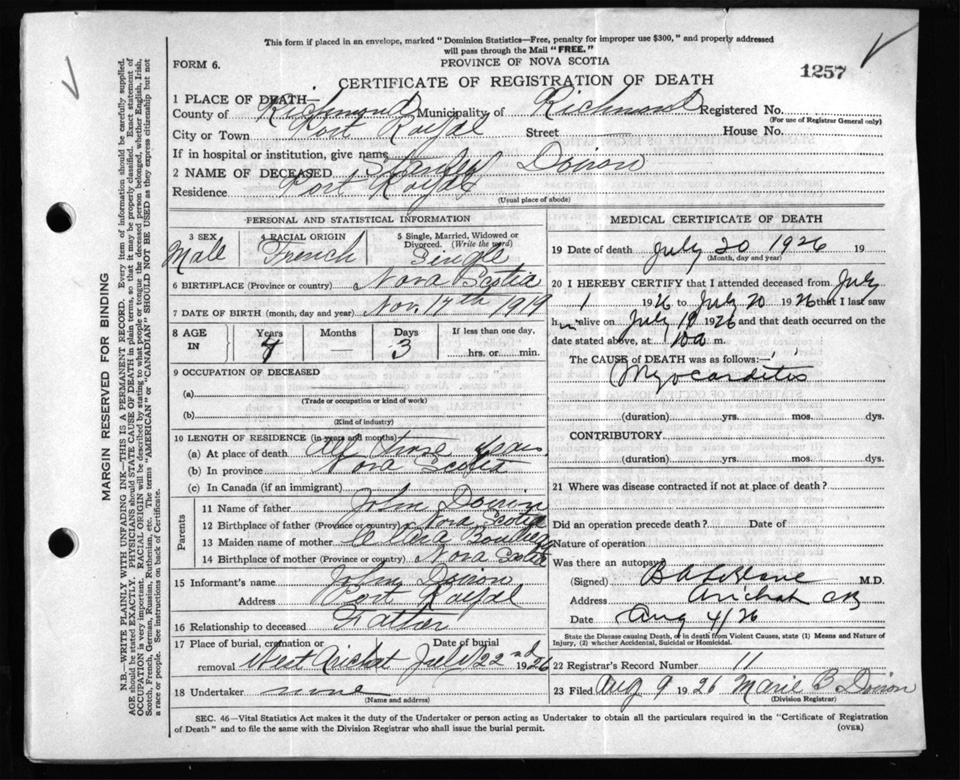 This form if placed in an envelope, marked "Dominion Statistics—Free, penalty for improper use $300," and properly addressed
will pass through the Mail "FREE."
FORM 6.
PROVINCE OF NOVA SCOTIA
CERTIFICATE OF REGISTRATION OF DEATH
1257
1 PLACE OF DEATH
County of Richmond Municipality of Richmond Registered No.
(For use of Registrar General only)
City or Town Port Royal Street — House No.
If in hospital or institution, give name
2 NAME OF DECEASED Stanley Doiron
Residence Port Royal
(Usual place of abode)
PERSONAL AND STATISTICAL INFORMATION
3 SEX 4 RACIAL ORIGIN 5 Single, Married, Widowed or Divorced. (Write the word)
Male French Single
6 BIRTHPLACE (Province or country) Nova Scotia
7 DATE OF BIRTH (month, day and year) Nov. 17th 1919
8 AGE IN Years Months Days If less than one day,
— 3 hrs. or min.
9 OCCUPATION OF DECEASED
(a)
(Trade or occupation or kind of work)
(b)
(Kind of industry)
10 LENGTH OF RESIDENCE (in years and months)
(a) At place of death
(b) In province Nova Scotia
(c) In Canada (if an immigrant)
Parents
11 Name of father John Doiron
12 Birthplace of father (Province or country) Nova Scotia
13 Maiden name of mother
14 Birthplace of mother (Province or country) Nova Scotia
15 Informant's name John Doiron
Address Port Royal
16 Relationship to deceased Father
17 Place of burial, cremation or removal West Arichat Date of burial July 22nd 1926
18 Undertaker none
(Name and address)
MEDICAL CERTIFICATE OF DEATH
19 Date of death July 20 1926 19
(Month, day and year)
20 I HEREBY CERTIFY that I attended deceased from July
1 1926 to July 20 1926 that I last saw
him alive on July 19 1926 and that death occurred on the
date stated above, at 10 a m.
The CAUSE of DEATH was as follows:—
Myocarditis
(duration) yrs. mos. dys.
CONTRIBUTORY
(duration) yrs. mos. dys.
21 Where was disease contracted if not at place of death?
Did an operation precede death? Date of
Nature of operation
Was there an autopsy
(Signed) M.D.
Address Arichat CB
Date Aug 4/26
State the Disease causing Death, or in death from Violent Causes, state (1) Means and Nature of
Injury, (2) whether Accidental, Suicidal or Homicidal.
22 Registrar's Record Number 11
23 Filed Aug 9 1926 Marie B Doiron
(Division Registrar)
SEC. 46—Vital Statistics Act makes it the duty of the Undertaker or person acting as Undertaker to obtain all the particulars required in the "Certificate of Registration
of Death" and to file the same with the Division Registrar who shall issue the burial permit.
(OVER)
MARGIN RESERVED FOR BINDING
N.B.—WRITE PLAINLY WITH UNFADING INK—THIS IS A PERMANENT RECORD. Every item of information should be carefully supplied.
AGE should be stated EXACTLY. PHYSICIANS should STATE CAUSE OF DEATH in plain terms, so that it may be properly classified. Exact statement of
OCCUPATION is very important. RACIAL ORIGIN will be described by stating to what people or tongue the deceased person belonged, whether English, Irish,
Scotch, French, German, Russian, Ruthenian, etc. The terms "AMERICAN" or "CANADIAN" SHOULD NOT BE USED as they express citizenship but not
a race or people. See instructions on back of Certificate.